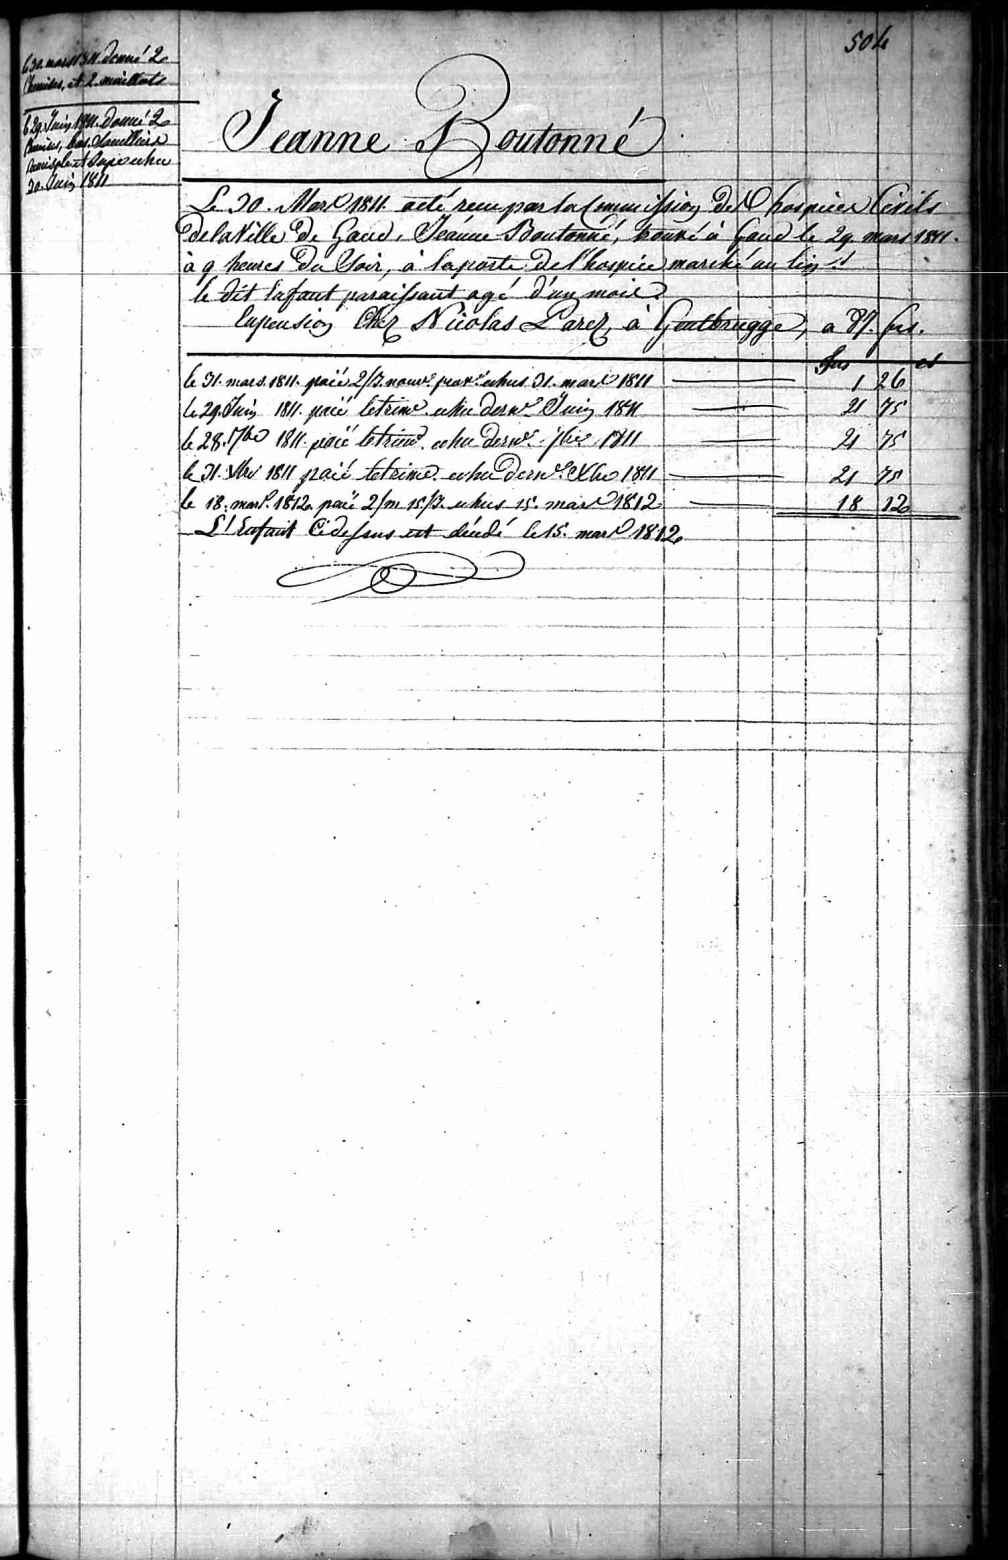 504
le 30 mars 1811. donné 2
Chemises, et 2. maillots
le 29. Juin 1811. donné 2
Chemises, bas,
et Jupe echu
30. Juin 1811
Jeanne Boutonné
Le 30. Mars 1811. a été recu par la Commission des hospices Civils
de la Ville de Gand, Jeanne Boutonné, trouvé à Gand le 29 mars 1811.
à 9 heures du Soir, à la porte de l'hospice marché au lin
le dit Enfant paraissant agé d'un mois.
En pension Chez Nicolas Parez, à Gentbrugge, a 87. frs.
frs cs
le 31. mars. 1811. paié 2/3. echus 31. mars 1811 1 26
le 29. Juin 1811. paié le trime. echu dernr. Juin 1811 21 75
le 28. 7bre 1811. paié le trime. echu dernr. 7bre 1811 21 75
le 31. Xbre 1811 paié le trime. echu dernr. Xbre 1811 21 75
le 18. mars. 1812 paié 2/m 15/J. echus 15. mars 1812 18 12
L'Enfant Cidessus est décédé le 15. mars 1812